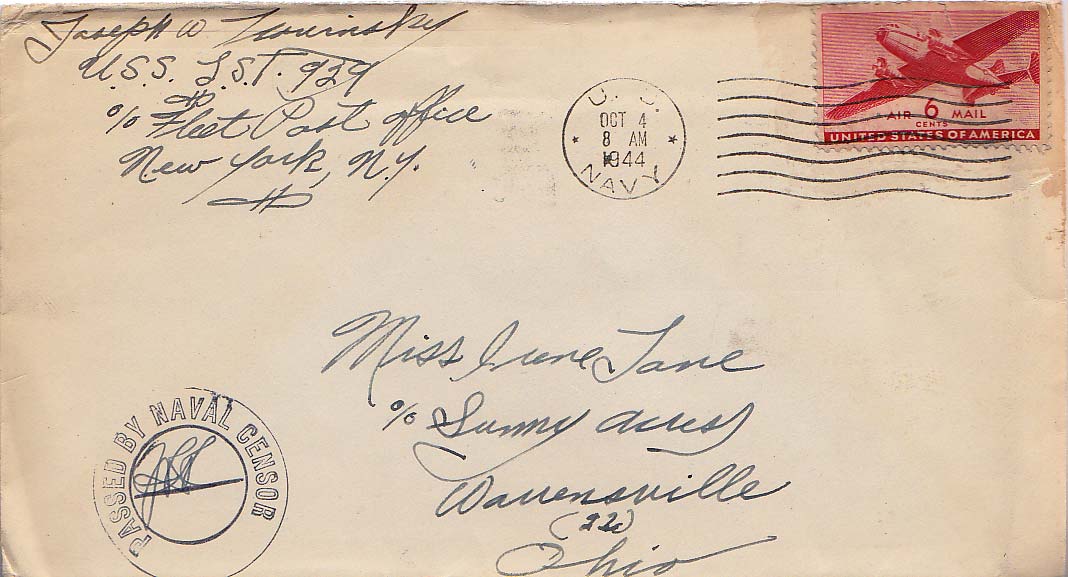 Joseph W
U.S.S. L.S.T. 929
c/o Fleet Post office
New York, N.Y.
U. S.
OCT 4
8 AM
1944
NAVY
AIR 6 MAIL
CENTS
UNITED STATES OF AMERICA
Miss June Jane
c/o Sunny acres
Warrensville
(22)
Ohio
PASSED BY NAVAL CENSOR